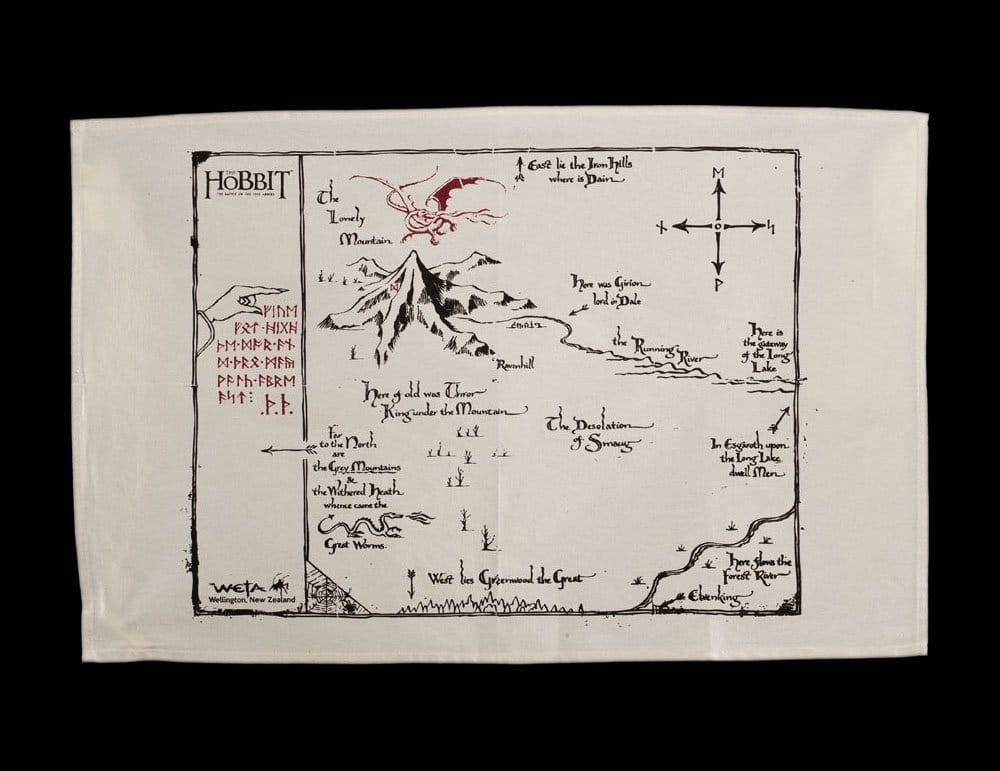 THE
HOBBIT
THE BATTLE OF THE FIVE ARMIES
ᚠᛁᚢᛖ
ᚠᚩᛏ᛫ᚻᛁᚷᚻ
ᚦᛖ᛫ᛞᚩᚱ᛫ᚪᚾ
ᛞ᛫ᚦᚱᛖ᛫ᛗᚪᚣ
ᚹᚪᛚᚳ᛫ᚪᛒᚱᛖ
ᚪᛋᛏ⁝
᛫ᚦ᛫ᚦ᛫
The
Lonely
Mountain
ᛞ
East lie the Iron Hills
where is Dain
ᛖ
ᚾ
ᛋ
ᚹ
Here was Girion
lord in Dale
the Running River
Here is
the gateway
of the Long
Lake
Ravenhill
Here of old was Thror
King under the Mountain
The Desolation
of Smaug
In Esgaroth upon
the Long Lake
dwell Men
Far
to the North
are
the Grey Mountains
&
the Withered Heath
whence came the
Great Worms.
West lies Greenwood the Great
Here flows the
Forest River
Elvenking
WETA
Wellington, New Zealand